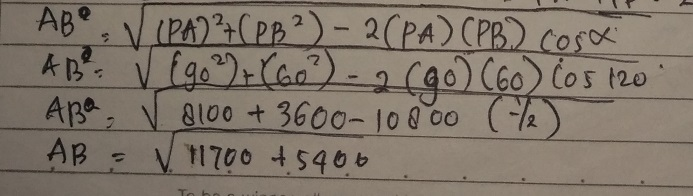 AB² = √(PA)²+(PB²) - 2(PA)(PB) cos α
AB² = √(90²)+(60²) - 2(90)(60) Cos 120
AB² = √8100 + 3600 - 10800 (-1/2)
AB = √11700 + 5400